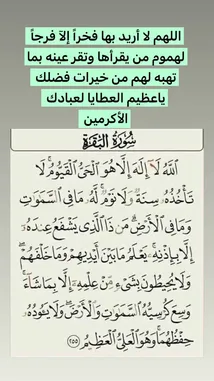 اللهم لا أريد بها فخراً إلآ فرجاً
لهموم من يقرأها وتقر عينه بما
تهبه لهم من خيرات فضلك
ياعظيم العطايا لعبادك
الأكرمين
سُورَةُ البَقَرَةِ
ٱللَّهُ لَآ إِلَٰهَ إِلَّا هُوَ ٱلْحَىُّ ٱلْقَيُّومُ ۚ لَا
تَأْخُذُهُۥ سِنَةٌ وَلَا نَوْمٌ ۚ لَّهُۥ مَا فِى ٱلسَّمَٰوَٰتِ
وَمَا فِى ٱلْأَرْضِ ۗ مَن ذَا ٱلَّذِى يَشْفَعُ عِندَهُۥٓ
إِلَّا بِإِذْنِهِۦ ۚ يَعْلَمُ مَا بَيْنَ أَيْدِيهِمْ وَمَا خَلْفَهُمْ ۖ
وَلَا يُحِيطُونَ بِشَىْءٍ مِّنْ عِلْمِهِۦٓ إِلَّا بِمَا شَآءَ ۚ
وَسِعَ كُرْسِيُّهُ ٱلسَّمَٰوَٰتِ وَٱلْأَرْضَ ۖ وَلَا يَـُٔودُهُۥ
حِفْظُهُمَا ۚ وَهُوَ ٱلْعَلِىُّ ٱلْعَظِيمُ ٢٥٥